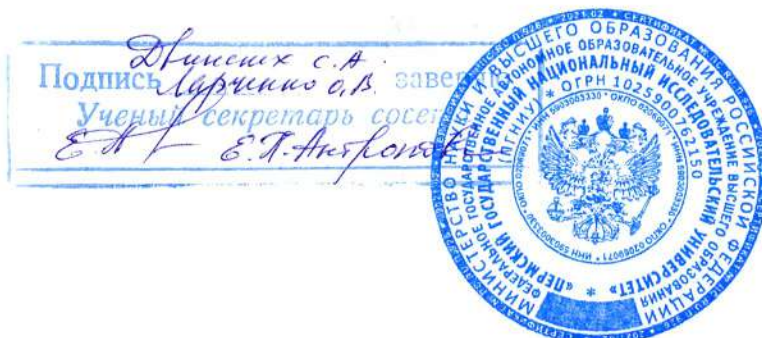 Двинских С.А.
Подпись Ларченко О.В. завер
Ученый секретарь совет
Е.П. Антропова
МИНИСТЕРСТВО НАУКИ И ВЫСШЕГО ОБРАЗОВАНИЯ РОССИЙСКОЙ ФЕДЕРАЦИИ
ФЕДЕРАЛЬНОЕ ГОСУДАРСТВЕННОЕ АВТОНОМНОЕ ОБРАЗОВАТЕЛЬНОЕ УЧРЕЖДЕНИЕ ВЫСШЕГО ОБРАЗОВАНИЯ
«ПЕРМСКИЙ ГОСУДАРСТВЕННЫЙ НАЦИОНАЛЬНЫЙ ИССЛЕДОВАТЕЛЬСКИЙ УНИВЕРСИТЕТ» *
(ПГНИУ) * ОГРН 1025900762150
* ИНН 5903003330 * ОКПО 02069071